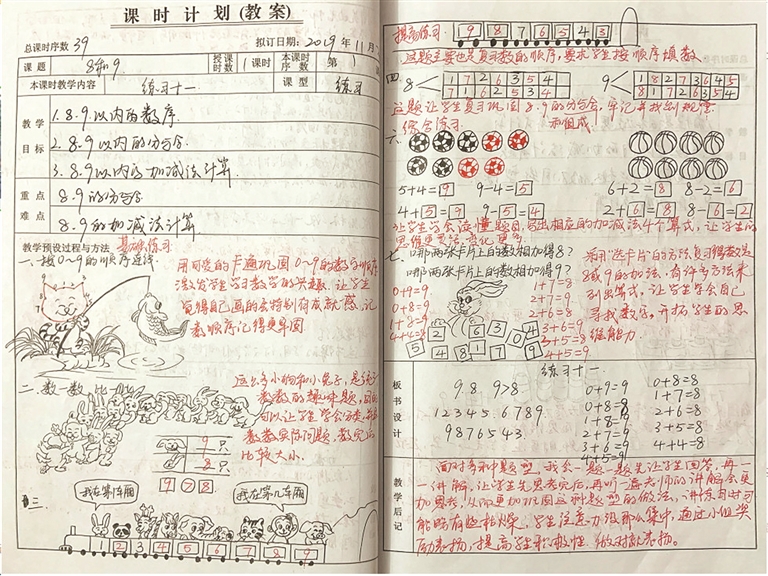 课时计划(教案)
总课时序数 39 拟订日期:2019年11月
课题 8和9 授课时数 1课时 本课时序数 第1
本课时教学内容 练习十一 课型 练习
教学目标
1.8.9以内的数序
2.8.9以内的分与合
3.8.9以内的加减法计算
重点 8.9的分与合
难点 8.9的加减法计算
教学预设过程与方法 基础练习
一、按0~9的顺序连线
用可爱的卡通巩固0~9的数字顺序
激发学生学习数学的兴趣,让学生
觉得自己画的会特别有成就感,记
数顺序记得更牢固
二、数一数,比一比
这么多小狗和小兔子,是统计
数数的趣味题,
可以让学生学会分类,
数数实际问题,数完后
比较大小.
9 只
8 只
9 > 8
三
我在第1车厢
我在第几车厢
1 2 3 4 5 6 7 8 9
提高练习. 9 8 7 6 5 4 3
这题主要也是复习数的顺序,要求学生按顺序填数
四. 8 1 7 2 6 3 5 4
7 1 6 2 5 3 4
9 1 8 2 7 3 6 4 5
8 1 7 2 6 3 5 4
这题让学生复习巩固8.9的分与合,牢记并找到规律
综合练习 和组成.
六.
5+4=9 9-4=5 6+2=8 8-2=6
4+5=9 9-5=4 2+6=8 8-6=2
让学生学会读懂题目,写出相应的加减法4个算式,让学生的
思维更灵活,变化更多
七、哪两张卡片上的数相加得8?
哪两张卡片上的数相加得9?
0+9=9
0+8=8
1+8=9
4+4=8
1+7=8
2+7=9
2+6=8
3+6=9
3+5=8
4+5=9
2 6 3 0 4
5 4 8 1 7 9
采用“选卡片”的方法,复习得数是
8或9的加法,有许多方法来
列出算式,让学生学会自己
寻找数字,开拓学生的思
维能力.
板书设计
练习十一
9.8 9>8
1 2 3 4 5 6 7 8 9
9 8 7 6 5 4 3
0+9=9
0+8=8
1+8=9
2+7=9
3+6=9
4+5=9
0+8=8
1+7=8
2+6=8
3+5=8
4+4=8
教学后记
面对多种题型,我会一题一题先让学生回答,再一
一讲解,让学生先思考完后,再听一遍老师的讲解会更
加思考,从而更加巩固这种题型的做法,讲练同时可
能略有些枯燥,学生注意力没那么集中,通过小组奖
励表扬,提高学生积极性.做对就表扬.